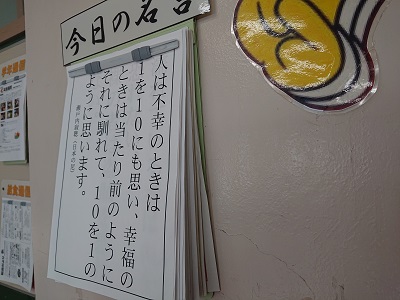 今日の名言
人は不幸のときは
1を10にも思い、幸福の
ときは当たり前のように
それに馴れて、10を1の
ように思います。
瀬戸内寂聴（日本の尼）